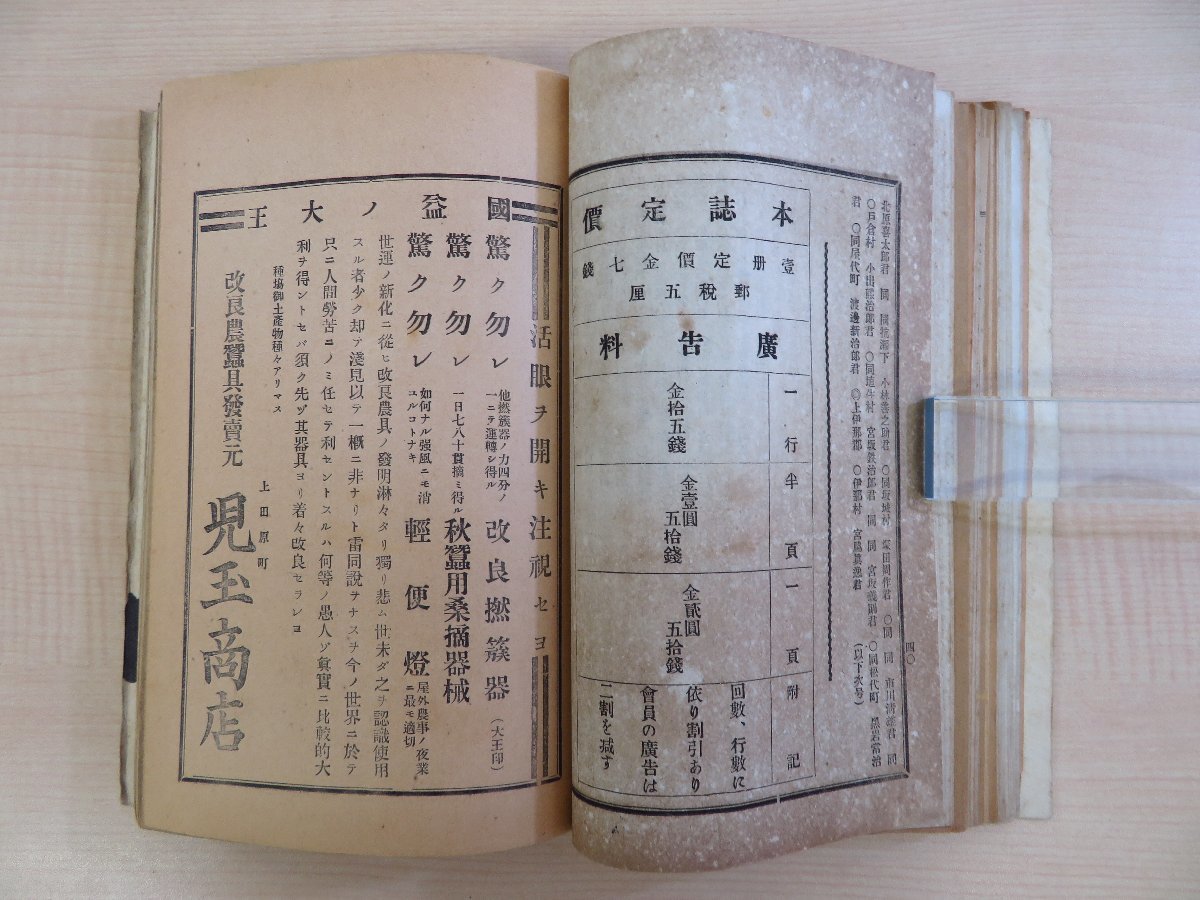 北原喜太郎君 同 同杭瀬下 小林善之助君 〇同坂城村 塚田周作君 〇同 同 市川清雄君 同
〇戸倉村 小出熊治郎君 〇同 宮坂鉄治郎君 同 同 宮坂義師君 〇同松代町 黒岩常治
君 〇同屋代町 渡邊新治郎君 ◎上伊那郡 〇伊那村 宮脇眞逸君 (以下次号)
四〇
本誌定價
壹册定價金七錢
郵税五厘
廣告料
一行 金拾五錢
半頁 金壹圓五拾錢
一頁 金貳圓五拾錢
附記
回數、行數に
依り割引あり
會員の廣告は
二割を減す
活眼ヲ開キ注視セヨ
國益ノ大王
驚ク勿レ 他撚簇器ノ力四分ノ一ニテ運轉シ得ル 改良撚簇器 (大王印)
驚ク勿レ 一日七八十貫摘ミ得ル 秋蠶用桑摘器械
驚ク勿レ 如何ナル强風ニモ消ユルコトナキ 輕便燈 屋外農事ノ夜業ニ最モ適切
世運ノ新化ニ從ヒ改良農具ノ發明淋々タリ獨リ悲ム世未ダ之ヲ認識使用
スル者少ク却テ淺見以テ一概ニ非ナリト雷同說ヲナスヲ今ノ世界ニ於テ
只ニ人間勞苦ニノミ任セテ利セントスルハ何等ノ愚人ゾ眞實ニ比較的大
利ヲ得ントセバ須ク先ヅ其器具ヨリ着々改良セラレヨ
種場御土產物種々アリマス
改良農蠶具發賣元
上田原町
児玉商店